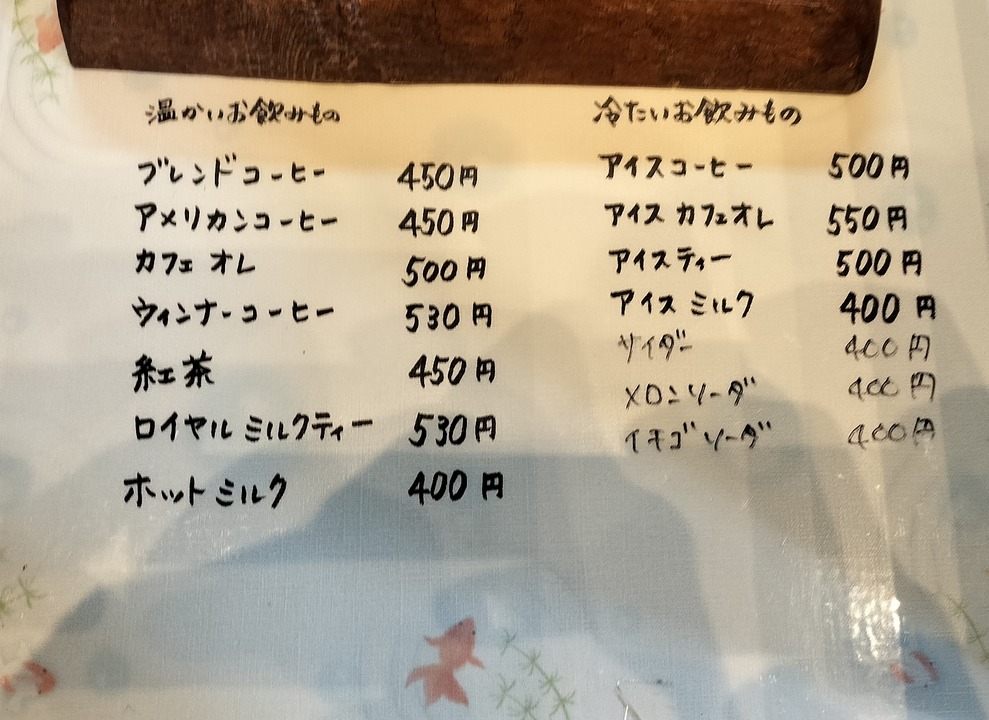 温かいお飲みもの
ブレンドコーヒー 450円
アメリカンコーヒー 450円
カフェ オレ 500円
ウィンナーコーヒー 530円
紅茶 450円
ロイヤル ミルクティー 530円
ホット ミルク 400円
冷たいお飲みもの
アイスコーヒー 500円
アイス カフェオレ 550円
アイスティー 500円
アイス ミルク 400円
サイダー 400円
メロンソーダ 400円
イチゴソーダ 400円